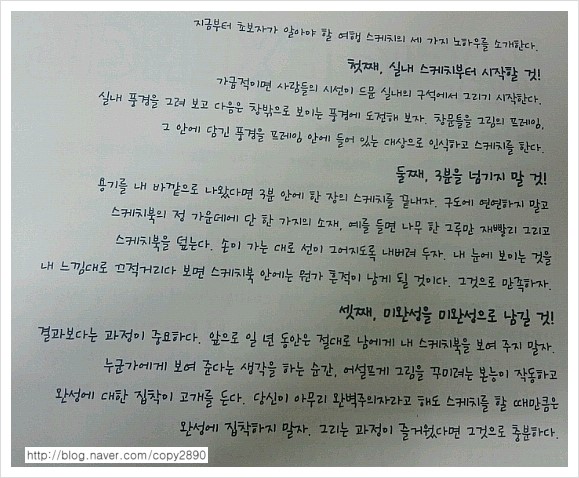 지금부터 초보자가 알아야 할 여행 스케치의 세 가지 노하우를 소개한다.
첫째, 실내 스케치부터 시작할 것!
가급적이면 사람들의 시선이 드문 실내의 구석에서 그리기 시작한다.
실내 풍경을 그려 보고 다음은 창밖으로 보이는 풍경에 도전해 보자. 창문틀을 그림의 프레임,
그 안에 담긴 풍경을 프레임 안에 들어 있는 대상으로 인식하고 스케치를 한다.
둘째, 3분을 넘기지 말 것!
용기를 내 바깥으로 나왔다면 3분 안에 한 장의 스케치를 끝내자. 구도에 연연하지 말고
스케치북의 전 가운데에 단 한 가지의 소재, 예를 들면 나무 한 그루만 재빨리 그리고
스케치북을 덮는다. 손이 가는 대로 선이 그어지도록 내버려 두자. 내 눈에 보이는 것을
내 느낌대로 끄적거리다 보면 스케치북 안에는 뭔가 흔적이 남게 될 것이다. 그것으로 만족하자.
셋째, 미완성을 미완성으로 남길 것!
결과보다는 과정이 중요하다. 앞으로 일 년 동안은 절대로 남에게 내 스케치북을 보여 주지 말자.
누군가에게 보여 준다는 생각을 하는 순간, 어설프게 그림을 꾸미려는 본능이 작동하고
완성에 대한 집착이 고개를 든다. 당신이 아무리 완벽주의자라고 해도 스케치를 할 때만큼은
완성에 집착하지 말자. 그리는 과정이 즐거웠다면 그것으로 충분하다.
http://blog.naver.com/copy2890